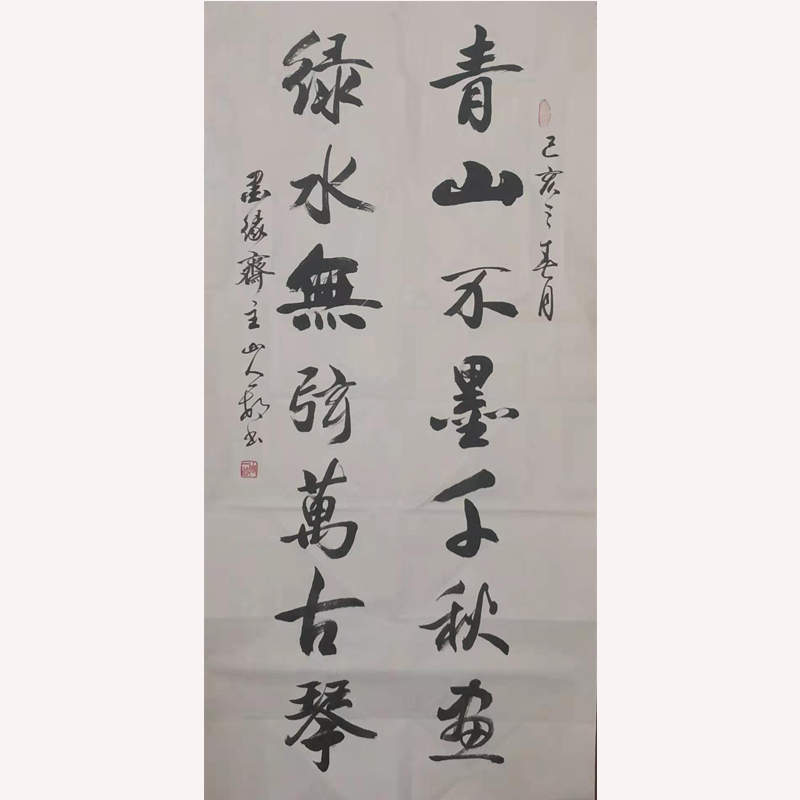 己亥之春月
青山不墨千秋畫
綠水無弦萬古琴
墨緣齋主山人書